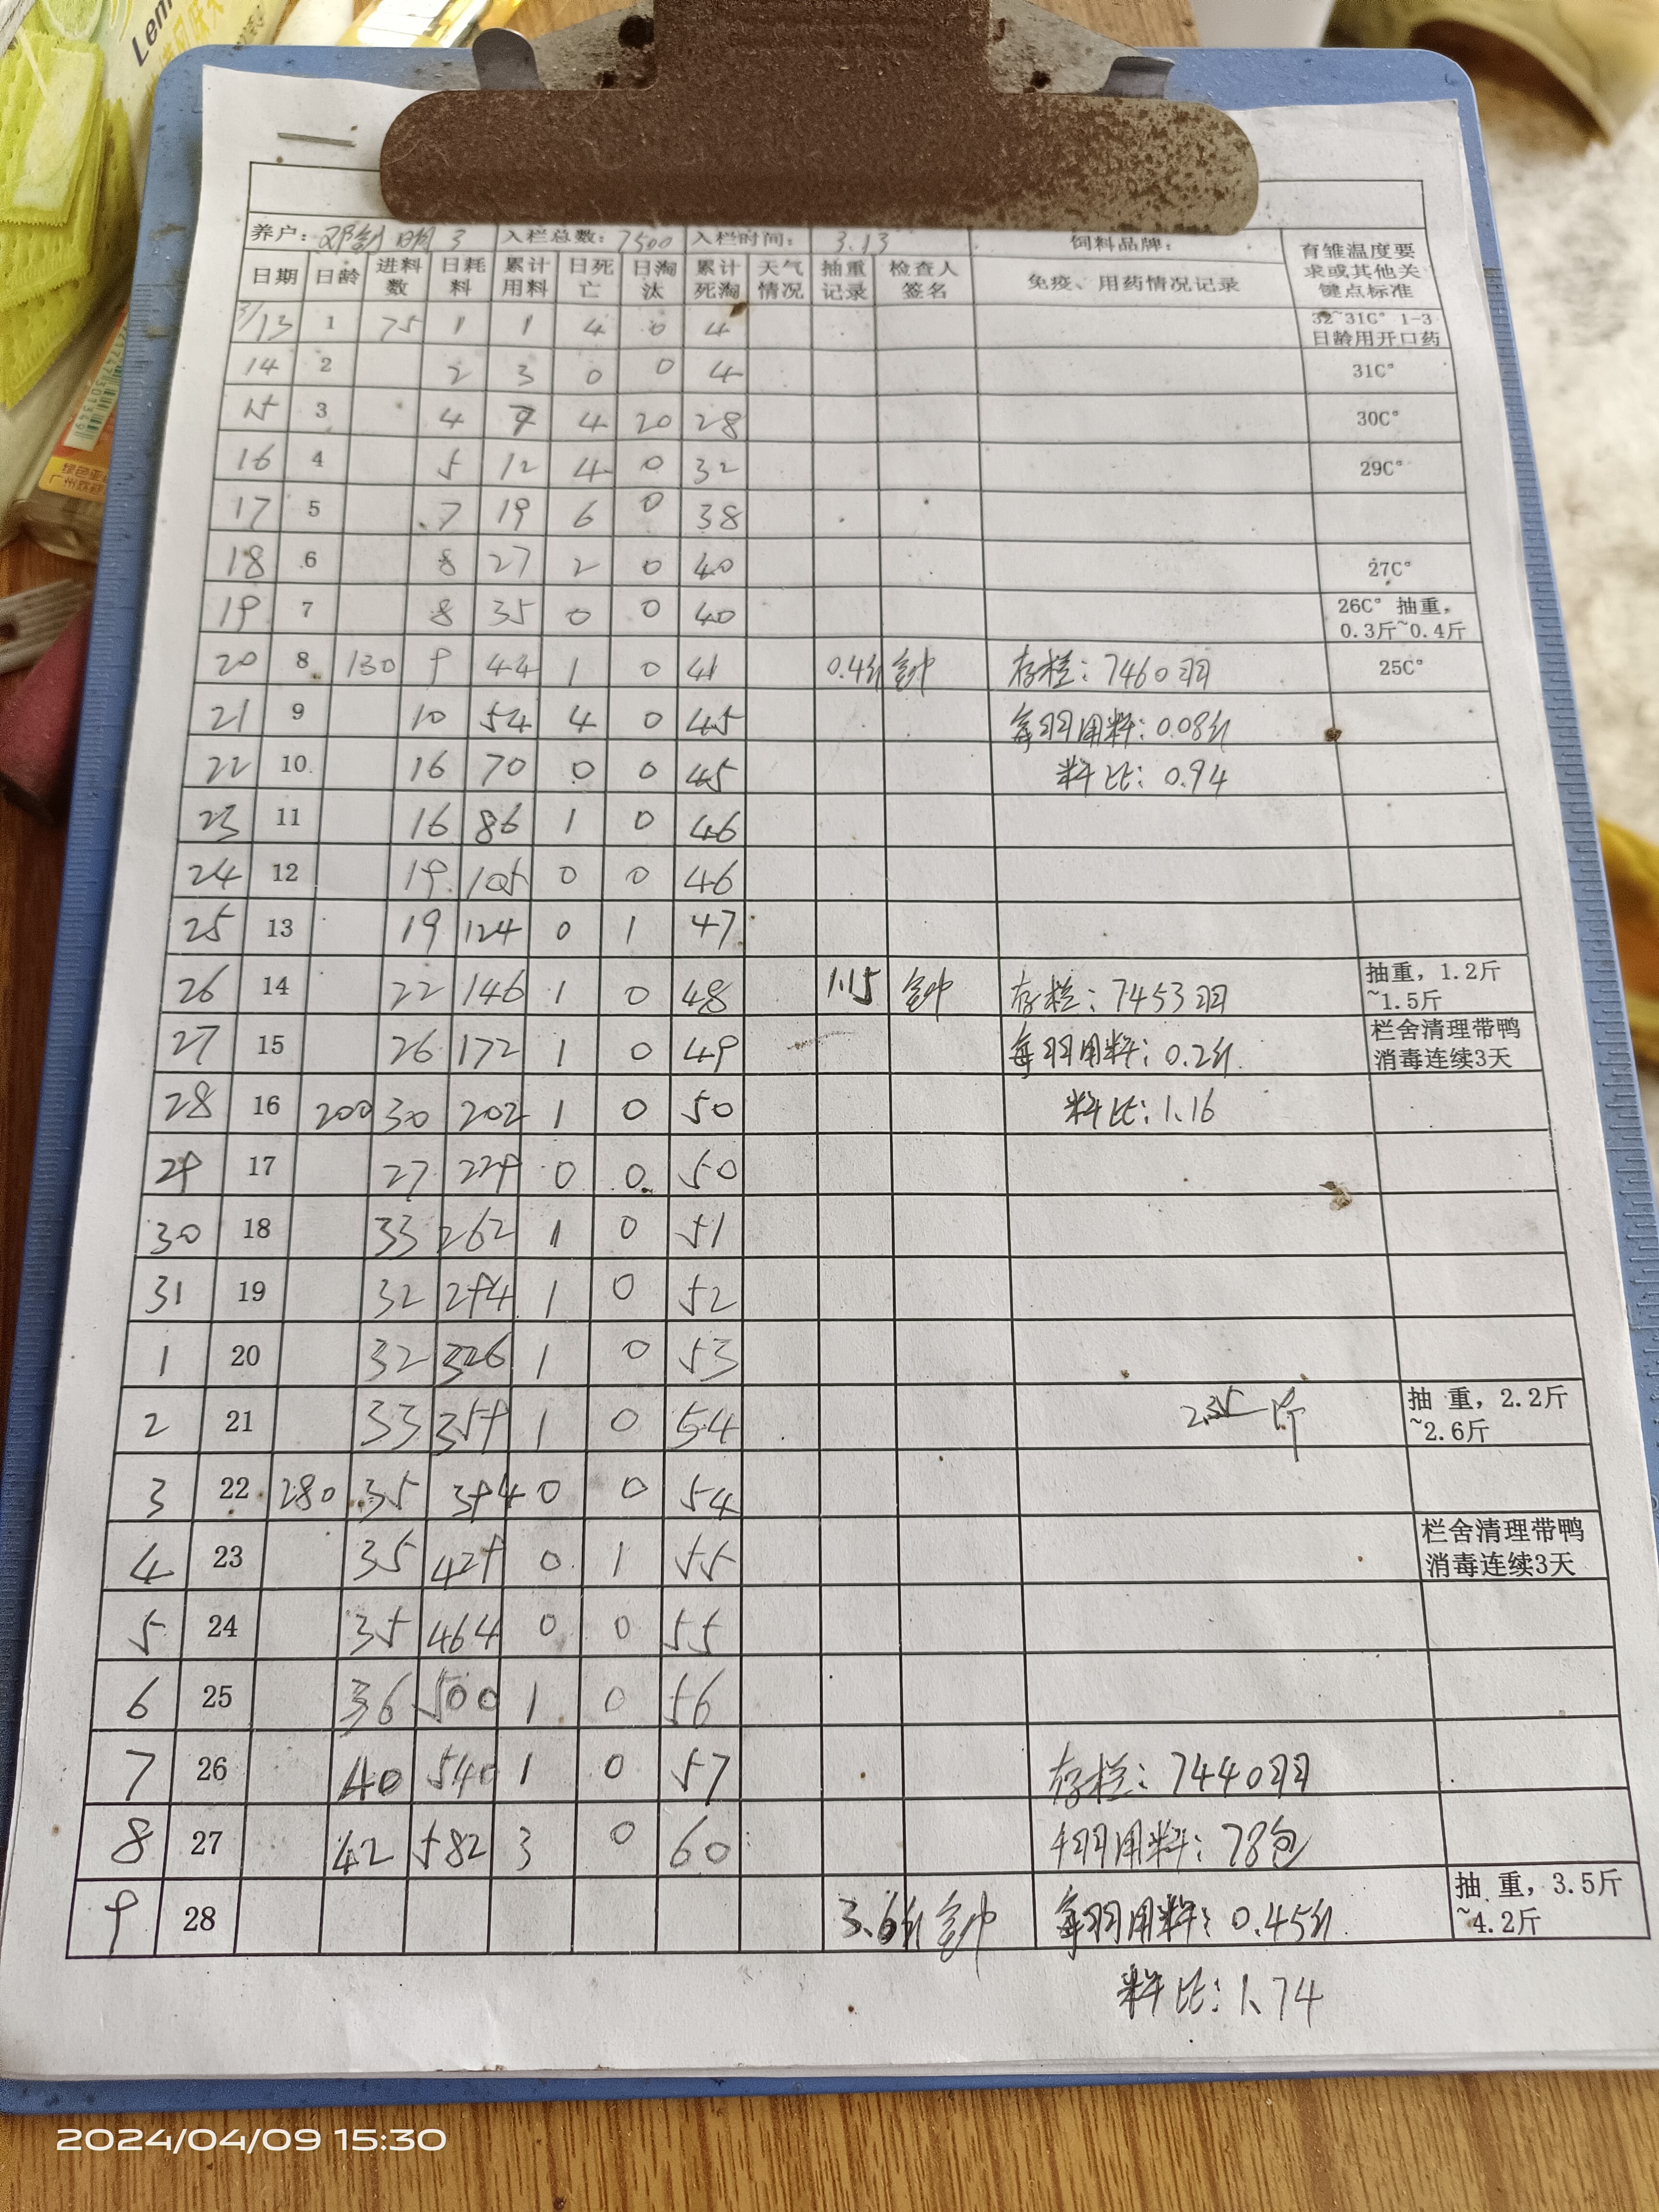 Lem
养户: 邓 明 3 入栏总数: 7500 入栏时间: 3.13 饲料品牌: 育雏温度要求或其他关键点标准
日期 日龄 进料数 日耗料 累计用料 日死亡 日淘汰 累计死淘 天气情况 抽重记录 检查人签名 免疫、用药情况记录
3/13 1 75 1 1 4 0 4 32~31C° 1-3日龄用开口药
14 2 2 3 0 0 4 31C°
15 3 4 7 4 20 28 30C°
16 4 5 12 4 0 32 29C°
17 5 7 19 6 0 38
18 6 8 27 2 0 40 27C°
19 7 8 35 0 0 40 26C° 抽重, 0.3斤~0.4斤
20 8 130 9 44 1 0 41 0.4斤 存栏: 7460羽 25C°
21 9 10 54 4 0 45 每羽用料: 0.08斤
22 10 16 70 0 0 45 料比: 0.94
23 11 16 86 1 0 46
24 12 19 105 0 0 46
25 13 19 124 0 1 47
26 14 22 146 1 0 48 1.15 存栏: 7453羽 抽重, 1.2斤~1.5斤
27 15 26 172 1 0 49 每羽用料: 0.2斤 栏舍清理带鸭消毒连续3天
28 16 200 30 202 1 0 50 料比: 1.16
29 17 27 229 0 0 50
30 18 33 262 1 0 51
31 19 32 294 1 0 52
1 20 32 326 1 0 53
2 21 33 359 1 0 54 2.35斤 抽 重, 2.2斤~2.6斤
3 22 280 35 394 0 0 54
4 23 35 429 0 1 55 栏舍清理带鸭消毒连续3天
5 24 35 464 0 0 55
6 25 36 500 1 0 56
7 26 40 540 1 0 57 存栏: 7440羽
8 27 42 582 3 0 60 千羽用料: 78包
9 28 3.6斤 每羽用料: 0.45斤 抽 重, 3.5斤~4.2斤
料比: 1.74
2024/04/09 15:30